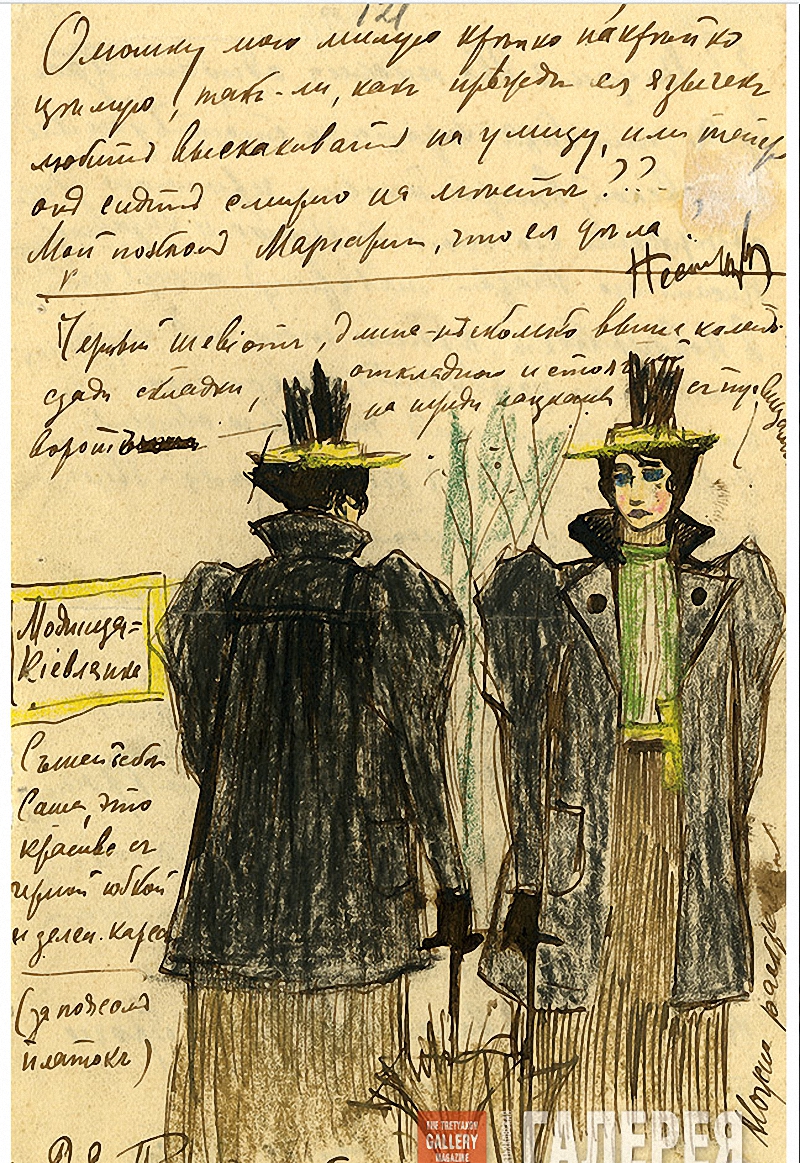 121
Олюшку мою милую крѣпко накрѣпко
цѣлую, такъ-ли, какъ прежде ея язычекъ
любитъ выскакивать на улицу, или теперь
онъ сидитъ смирно на мѣстѣ???
Мой поклонъ Маргарит, что ея
Нестеровъ
Черный шевiотъ, длина-нѣсколько выше колѣнъ
сзади складки, откладной и стоячий
воротъ на переди
Модница=
Кiевлянка
Сшей себѣ
Саша, это
красиво съ
черной юбкой
и зелен.
(за поясомъ
платокъ)
Можно
THE TRETYAKOV
GALLERY
MAGAZINE
ГАЛЕРЕЯ